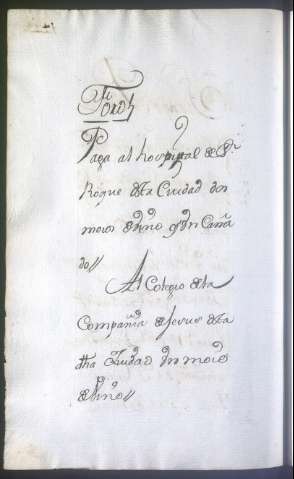 Paga al hospital de Sn
Roque desta Ciudad dos
moios de vino
do//
Al Colegio desta
Compañia de Jesus desta
dha Ciudad un moio
de vino//